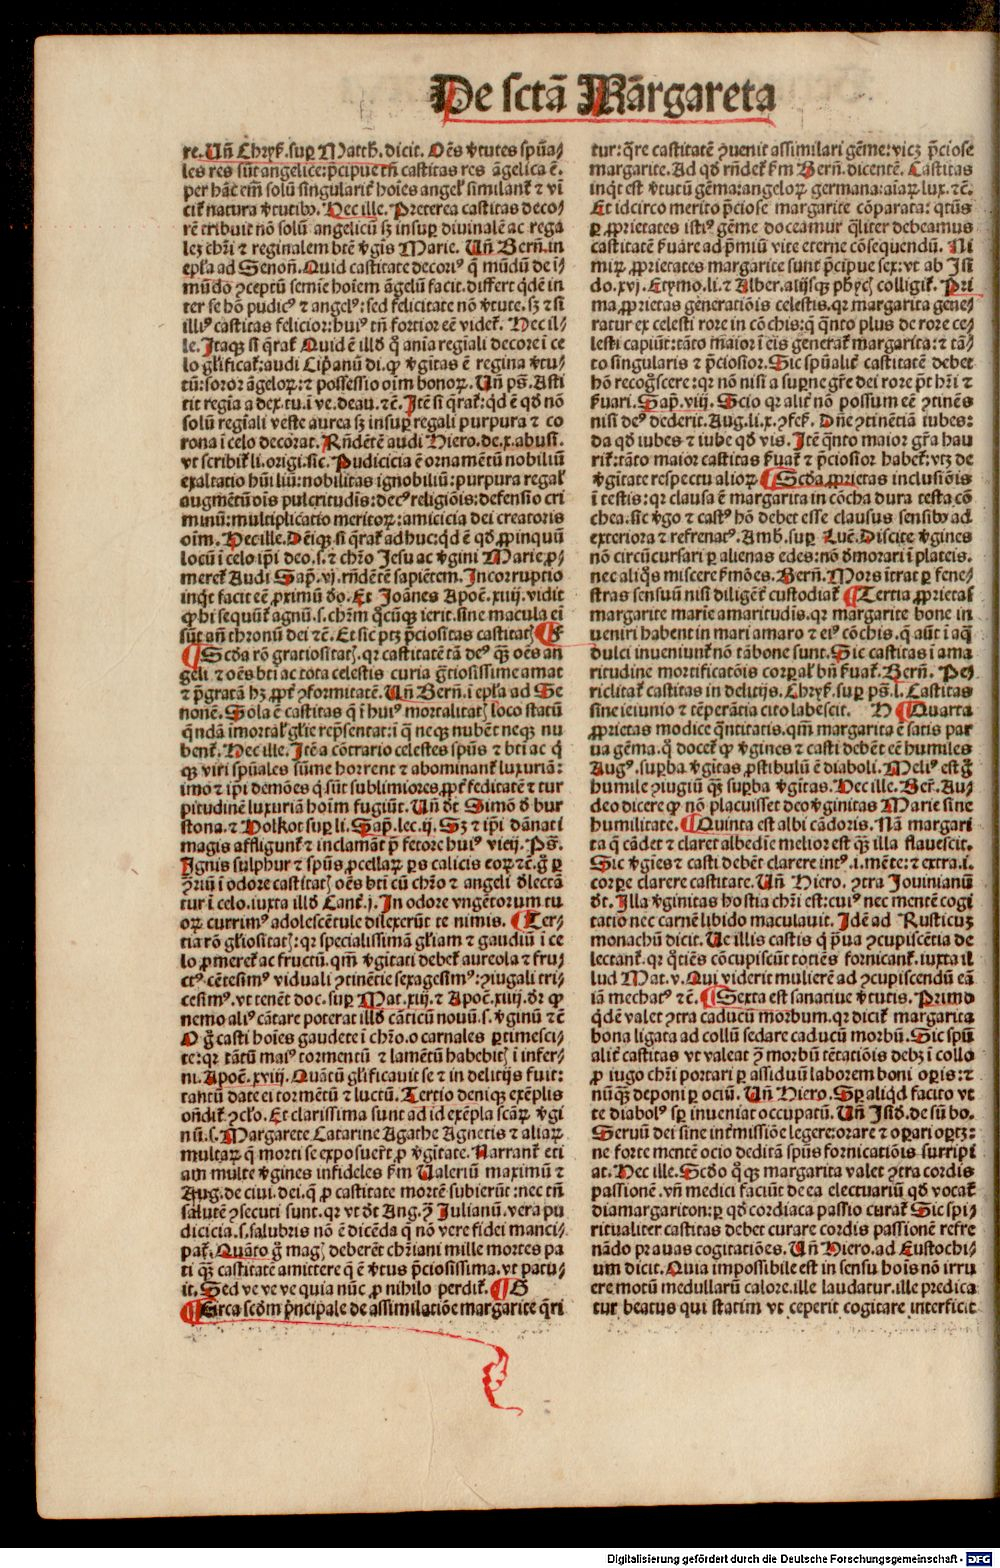 De sctā Mārgareta
re. Uñ Chryſ. suꝑ Matth. dicit. Oēs v̓tutes spūa⸗
les res sūt angelice: p̄cipue tñ castitas res āgelica ē.
per hāc em̄ solū singularit̓ hoīes angeḷ similanť ⁊ vī
ciť natura v̓tutibꝰ. Hec ille. Preterea castitas deco⸗
rē tribuit nō solū angelicū sꝫ insuꝑ diuinalē ac rega
leꝫ chr̄i ⁊ reginalem btē v̓gis Marie. Uñ Berñ. in
epl̄a ad Senoñ. Quid castitate decoriꝰ q̄ mūdū de ī⸗
mūdo ꝯceptū semīe hoīem āgelū facit. differt qͥdē in
ter se hō pudicꝰ ⁊ angelꝰ: sed felicitate nō v̓tute. sꝫ ⁊ si
illiꝰ castitas felicior: huiꝰ tñ fortior eē videť. Hec il⸗
le. Itaqꝫ si q̄rať Quid ē illd̓ q̄ aīa regiali decore ī ce
lo gl̄ificať: audi Cip̓anū di. ꝙ v̓gītas ē regina v̓tu⸗
tū: soror āgeloꝝ: ⁊ possessio oīm bonoꝝ. Uñ pš. Asti
tit regīa a dex. tu. ī ve. deau. ⁊č. Itē si q̄rať: qͥd ē qd̓ nō
solū regiali veste aurea sꝫ insuꝑ regali purpura ⁊ co
rona ī celo decorat. Rñdētē audi Hiero. de. x. abusī.
vt scribiť li. origi. sic. Pudicicia ē ornamētū nobiliū
exaltatio hūiliū: nobilitas ignobiliū: purpura regaḷ
augmētū oīs pulcritudīs: decꝰ religiōis: defensio cri
minū: multiplicatio meritoꝝ: amicicia dei creatoris
oīm. Hec ille. Dēiqꝫ si q̄rať adhuc: qͥd ē qd̓ ꝓpinquū
locū ī celo ip̄i deo. s. ⁊ chr̄o Jesu ac v̓gini Marie ꝓ⸗
mereť Audi Sap̄. vj. rñdētē sapiētem. Incorruptio
inqͥt facit eē ꝓximū d̓o. Et Joānes Apoč. xiiij. vidit
ꝙ hi sequūť agnū. s. chr̄m q̄cūqꝫ ierit. sine macula eī
sūt añ thronū dei ⁊č. Et sic ptꝫ p̄ciositas castitatꝭ ¶ F
¶ Scd̓a rō gratiositatꝭ. qꝛ castitatē tā deꝰ qͣꝫ oēs an
geli ⁊ oēs bti ac tota celestis curia gͣtiosissime amat
⁊ p̄gratā hꝫ ꝓpť ꝯformitatē. Uñ Berñ. ī epl̄a ad Se
nonē. Sola ē castitas q̄ ī huiꝰ mortalitatꝭ loco statū
q̄ndā imortaḷ gl̄ie rep̄sentat: ī q̄ neqꝫ nubēt neqꝫ nu
benť. Hec ille. Itē a cōtrario celestes spūs ⁊ bti ac q̄
qꝫ viri spūales sūme horrent ⁊ abominanť luxuriā:
imo ⁊ ip̄i demōes q̄ sūt sublimiores, ꝓpť feditatē ⁊ tur
pitudinē luxuriā hoīm fugiūt. Uñ dt̓ Simō d̓ bur
stona. ⁊ Holkot suꝑ li. Sap̄. lec. ij. Sꝫ ⁊ ip̄i dānati
magis affligunť ⁊ inclamāt ꝑ fetore huiꝰ vicij. Pš.
Ignis sulphur ⁊ spūs ꝓcellaꝝ ꝑs calicis eoꝝ ⁊č. g̊ ꝑ
ꝯriū ī odore castitatꝭ oēs bti cū chr̄o ⁊ angeli d̓lectā
tur ī celo. iuxta illd̓ Canť. j. In odore vngētorum tu
oꝝ currimꝰ adolescētule dilexerūt te nimis. ¶ Ter⸗
tia rō gl̄iositatꝭ: qꝛ specialissimā gl̄iam ⁊ gaudiū ī ce
lo ꝓmereť ac fructū. qm̄ v̓gitati debeť aureola ⁊ fru⸗
ctꝰ cētesimꝰ viduali ꝯtinētie sexagesimꝰ: ꝯiugali tri⸗
cesimꝰ. vt tenēt doc. suꝑ Mat. xiij. ⁊ Apoč. xiiij. dr̄ ꝙ
nemo aliꝰ cātare poterat illd̓ cāticū nouū. s. v̓ginū ⁊č
O g̊ casti hoīes gaudete ī chr̄o. o carnales ꝑtimesci⸗
te: qꝛ tātū maiꝰ tormentū ⁊ lamētū habebitꝭ ī infer⸗
ni. Apoč. xviij. Quātū gl̄ificauit se ⁊ in delitijs fuit:
tantū date ei tormētū ⁊ luctū. Tertio denique exēplis
oñdiť ꝯclo. Et clarissima sunt ad id exēpla scāꝝ v̓gi
nū. s. Margarete Catarine Agathe Agnetis ⁊ aliaꝝ
multaꝝ q̄ morti se exposuer̄t ꝓ v̓gitate. Narranť eti
am multe v̓gines infideles ẜm Ualeriū maximū ⁊
Aug. de ciui. dei. q̄ ꝓ castitate mortē subierūt: nec tñ
salutē ꝯsecuti sunt. qꝛ vt dt̓ Aug. ꝯ̄ Julianū. vera pu
dicicia. s. salubris nō ē dicēda q̄ nō vere fidei manci⸗
pať. Quāto g̊ magꝭ deberēt chr̄iani mille mortes pa
ti qͣꝫ castitatē amittere q̄ ē v̓tus p̄ciosissima. vt patu⸗
it. Sed ve ve ve quia nūc ꝓ nihilo perdiť. ¶ G
¶ Circa scd̓m p̄ncipale de assimilatiōe margarite q̄ri
tur: q̄re castitatē ꝯuenit assimilari gēme: viꝫ p̄ciose
margarite. Ad qd̓ rñdeť ẜm Berñ. dicentē. Castitas
inqͥt est v̓tutū gēma: angeloꝝ germana: aīaꝝ lux. ⁊č.
Et idcirco merito p̄ciose margarite cōparata: qͣtūs
ꝑ ꝓprietates istiꝰ gēme doceamur qͣliter debeamus
castitatē ẜuare ad p̄miū vite eterne cōsequendū. Ni
miꝝ ꝓprietates margarite sunt p̄cipue sex: vt ab Isi
do. xvj. Etymo. li. ⁊ Alber. alijsqꝫ phꝫcꝭ colligiť. Pri
ma, ꝓprietas generatiōis celestis. qꝛ margarita gene⸗
ratur ex celesti rore in cōchis: q̄ qͣnto plus de rore ce⸗
lesti capiūt: tāto maior ī eis generať margarita: ⁊ tā⸗
to singularis ⁊ p̄ciosior. Sic spūalit̓ castitatē debet
hō recog̊scere: qꝛ nō nisi a suꝑne gr̄e dei rore pt̄ hr̄i ⁊
ẜuari. Sap̄. viij. Scio qꝛ alit̓ nō possum eē ꝯtinēs
nisi deꝰ dederit. Aug. li. x. ꝯfeš. Dñe ꝯtinētiā iubes:
da qd̓ iubes ⁊ iube qd̓ vis. Itē qͣnto maior gr̄a hau
riť: tāto maior castitas ẜuať ⁊ p̄ciosior habeť: vtꝫ de
v̓gitate respectu alioꝝ ¶ Scd̓a ꝓprietas inclusiōis
ī testis: qꝛ clausa ē margarita in cōcha dura testa cō
chea. sic v̓go ⁊ castꝰ hō debet esse clausus sensibꝰ ad
exteriora ⁊ refrenatꝰ. Amb. suꝑ Luč. Discite v̓gines
nō circūcursari ꝑ alienas edes: nō d̓morari ī plateis.
nec aliqͦs miscere ẜmōes. Berñ. Mors ītrat ꝑ fene⸗
stras sensuū nisi diligēť custodiať ¶ Tertia ꝓprietas
margarite marīe amaritudīs. qꝛ margarite bone in
ueniri habent in mari amaro ⁊ eiꝰ cōchis. q̄ aūt ī aq̄
dulci inueniunť nō tā bone sunt. Sic castitas ī ama
ritudine mortificatōis corꝑaḷ bñ ẜuať. Berñ. Pe⸗
riclitať castitas in delitijs. Chryſ. suꝑ pš. l. Castitas
sine ieiunio ⁊ tēperātia cito labescit. H ¶ Quarta
ꝓprietas modice qͣntitatis. qm̄ margarita ē satis par
ua gēma. q̄ doceť ꝙ v̓gines ⁊ casti debēt eē humiles
Augꝰ. suꝑba v̓gitas ꝓstibulū ē diaboli. Meliꝰ est g̊
humile ꝯiugiū qͣꝫ suꝑba v̓gitas. Hec ille. Beř. Au⸗
deo dicere ꝙ nō placuisset deo v̓ginitas Marie sine
humilitate. ¶ Quinta est albi cādoris. Nā margari
ta q̄ cādet ⁊ claret albedīe melior est qͣꝫ illa flauescit.
Sic v̓gies ⁊ casti debēt clarere intꝰ. i. mēte: ⁊ extra. i.
corꝑe clarere castitate. Uñ Hiero. ꝯtra Jouinianū
dt̓. Illa v̓ginitas hostia chr̄i est: cuiꝰ nec mentē cogi
tatio nec carnē libido maculauit. Idē ad Rusticuꝫ
monachū dicit. Ue illis castis q̄ p̄ua ꝯcupiscētia de
lectanť. qꝛ qͦtiēs cōcupiscūt totiēs fornicanť. iuxta il
lud Mat. v. Qui viderit mulierē ad ꝯcupiscendū eā
iā mechatꝰ ⁊č. ¶ Sexta est sanatiue v̓tutis. Primo
qͥdē valet ꝯtra caducū morbum. qꝛ diciť margarita
bona ligata ad collū sedare caducū morbū. Sic spū
alit̓ castitas vt valeat ꝯ̄ morbū tētatiōis debꝫ ī collo
ꝓ iugo chr̄i portari ꝑ assiduū laborem boni oꝑis: ⁊
nūqͣꝫ deponi ꝑ ociū. Uñ Hiero. Sꝑ aliqd̓ facito vt
te diabolꝰ sꝑ inueniat occupatū. Uñ Isid̓. de sū bo.
Seruū dei sine int̓missiōe legere: orare ⁊ oꝑari oꝑtꝫ:
ne forte mentē ocio deditā spūs fornicatiōis surripi
at. Hec ille. Scd̓o qͦqꝫ margarita valet ꝯtra cordis
passionē. vñ medici faciūt de ea electuariū qd̓ vocať
diamargariton: ꝑ qd̓ cordiaca passio curať Sic spi⸗
ritualiter castitas debet curare cordis passionē refre
nādo prauas cogitatiōes. Uñ Hiero. ad Eustochi⸗
um dicit. Quia impossibile est in sensu hoīs nō irru
ere motū medullarū calore. ille laudatur. ille predica
tur beatus qui statim vt ceperit cogitare interficit
Digitalisierung gefördert durch die Deutsche Forschungsgemeinschaft - DFG